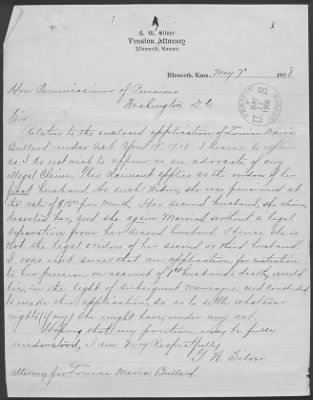 G. W. Silver
Pension Attorney
Ellsworth, Kansas
Ellsworth, Kans. May 7" 1908.
Hon Commissioner of Pensions
Washington D C
Sir
Relative to the enclosed application of Louise Maria
Bullard under Act April 19" 1908. I desire to explain
as I do not wish to appear as an advocate of any
illegal Claim. This Claimant applies as the widow of her
first husband. As such widow, she was pensioned at
the rate of $ per month. Her second husband, she claims,
deserted her, and she again married without a legal
separation from her second husband. Hence she is
not the legal widow of her second or third husband.
I was not sure that an application for restoration
to her pension on account of 1st husband's death, would
lie, in the light of subsequent marriages, and concluded
to make this application, so as to settle whatever
rights (if any) she might have, under any act.
Hoping that my position may be fully
understood, I am Very Respectfully
G. W. Silver
Attorney for Louise Maria Bullard.